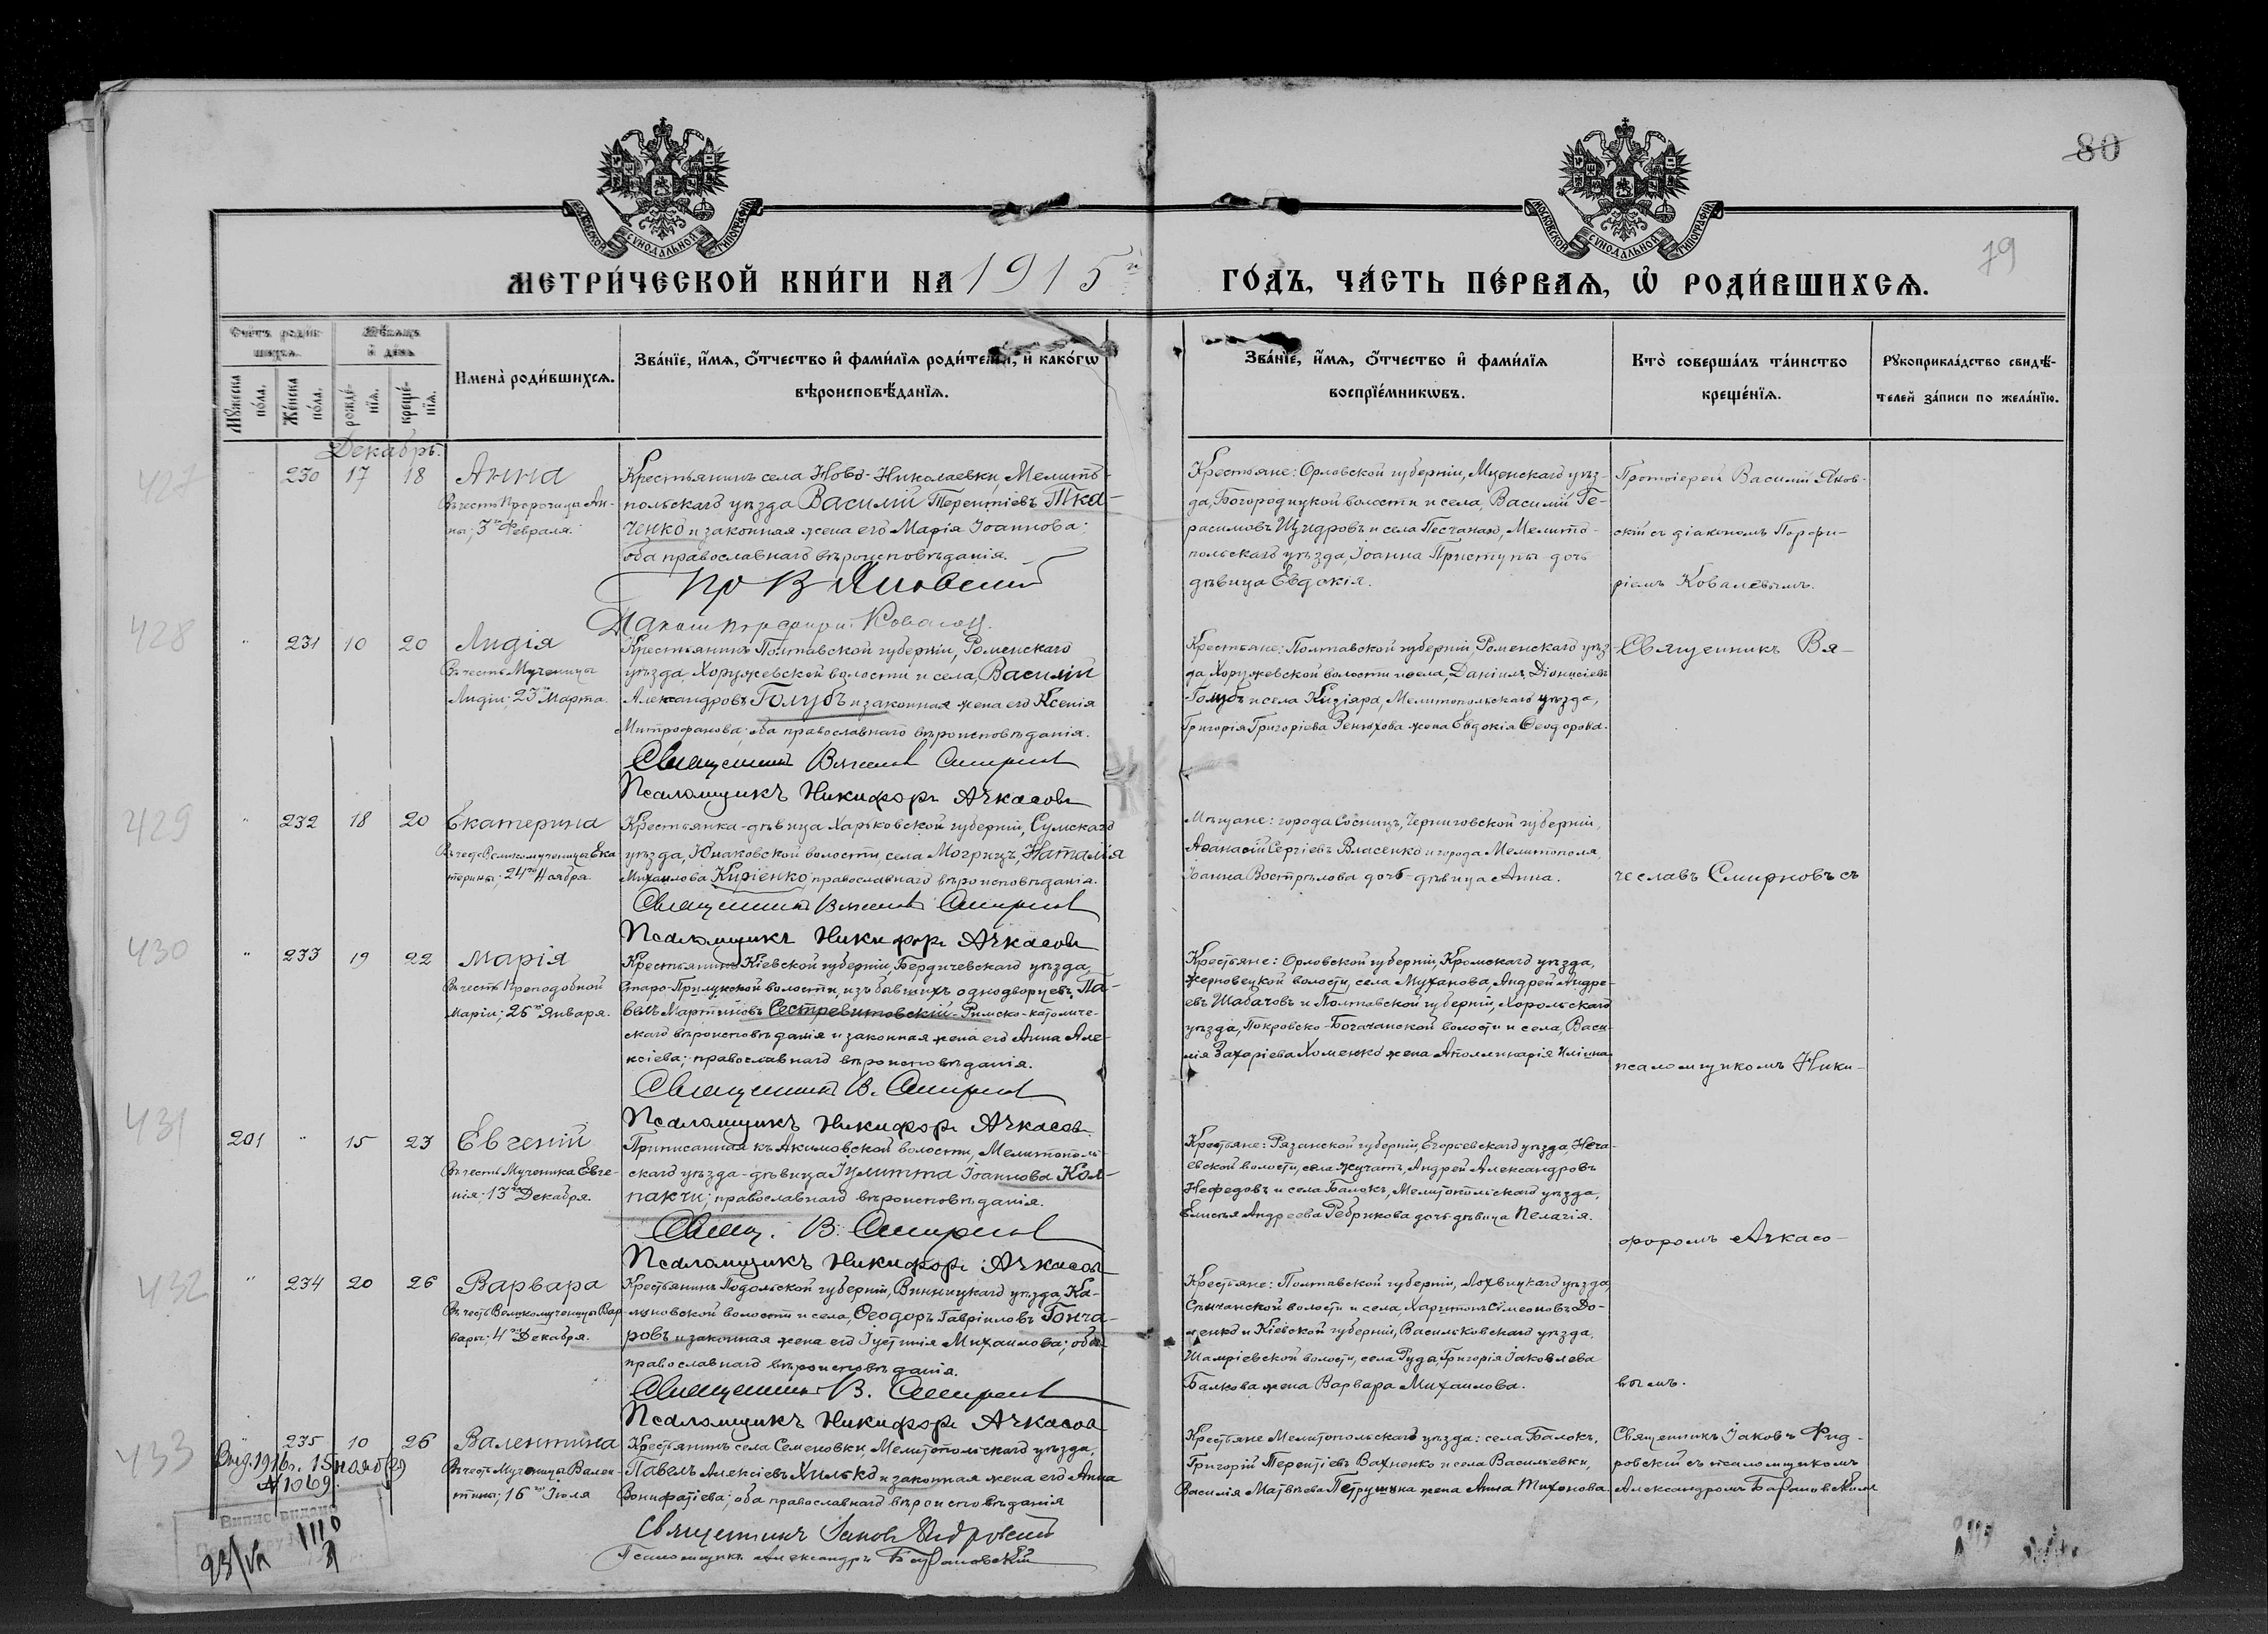 80
79
МОСКОВСКОЙ СѴНОДАЛЬНОЙ ТИПОГРАФІИ
МОСКОВСКОЙ СѴНОДАЛЬНОЙ ТИПОГРАФІИ
МЕТРИ́ЧЕСКОЙ КНИ́ГИ НА 1915 й
ГО́ДЪ, ЧА́СТЬ ПЕ́РВАѦ, Ѡ҆ РОДИ́ВШИХСѦ.
Сче́тъ роди́в-
шихсѧ.
Мꙋжеска по́ла.
Же́нска по́ла.
Мѣ́сѧцъ
и҆ де́нь
рожде́-
нїѧ.
креще́-
нїѧ.
И҆мена̀ роди́вшихсѧ.
Зва́нїе, и҆́мѧ, ѻ҆́тчество и҆ фами́лїѧ роди́телей, и҆ како́гѡ
вѣроисповѣ́данїѧ.
Зва́нїе, и҆́мѧ, ѻ҆́тчество и҆ фами́лїѧ
воспрїе́мникѡвъ.
Кто̀ соверша́лъ та́инство
креще́нїѧ.
Рꙋкоприкла́дство свидѣ́-
телей за́писи по жела́нїю.
Декабрь.
427
" 230 17 18
Анна
Въ честь Пророчицы Ан-
ны; 3го Февраля.
Крестьянинъ села Ново-Николаевки, Мелито-
польскаго уѣзда Василій Терентіевъ Тка-
ченко и законная жена его Марія Іоаннова;
оба православнаго вѣроисповѣданія.
Пр В Яновскій
Діаконъ Порфирій Ковалевъ.
Крестьяне: Орловской губерніи, Мценскаго уѣз-
да, Богородицкой волости и села, Василій Ге-
расимовъ Щидровъ и села Песчанаго, Мелито-
польскаго уѣзда, Іоанна Приступы дочь
дѣвица Евдокія.
Протоіерей Василій Янов-
скій съ діакономъ Порфи-
ріемъ Ковалевымъ.
428
" 231 10 20
Лидія
Въ честь Мученицы
Лидіи; 23го Марта.
Крестьянинъ Полтавской губерніи, Роменскаго
уѣзда, Хоружевской волости и села, Василій
Александровъ Голубъ и законная жена его Ксенія
Митрофанова; оба православнаго вѣроисповѣданія.
Священникъ Вячеславъ Смирновъ
Псаломщикъ Никифоръ Ачкасовъ
Крестьяне: Полтавской губерніи, Роменскаго уѣз-
да, Хоружевской волости и села, Даніилъ Діонисіевъ
Голубъ и села Кизіяра, Мелитопольскаго уѣзда,
Григорія Григоріева Ренюхова жена Евдокія Ѳеодорова.
Священникъ Вя-
429
" 232 18 20
Екатерина
Въ честь Великомученицы Ека-
терины; 24го Ноября.
Крестьянка-дѣвица Харьковской губерніи, Сумскаго
уѣзда, Юнаковской волости, села Могрицъ, Наталія
Михаилова Киріенко; православнаго вѣроисповѣданія.
Священникъ Вячеславъ Смирновъ
Псаломщикъ Никифоръ Ачкасовъ
Мѣщане: города Сосницъ, Черниговской губерніи,
Аѳанасій Сергіевъ Власенко и города Мелитополя,
Іоанна Вострѣлова дочь-дѣвица Анна.
чеславъ Смирновъ съ
430
" 233 19 22
Марія
Въ честь Преподобной
Маріи; 26го Января.
Крестьянинъ Кіевской губерніи, Бердичевскаго уѣзда,
Старо-Прилукской волости, изъ бывшихъ однодворцевъ, Па-
велъ Мартиновъ Сестревитовскій-Римско-католиче-
скаго вѣроисповѣданія и законная жена его Анна Але-
ксіева; православнаго вѣроисповѣданія.
Священникъ В. Смирновъ
Псаломщикъ Никифоръ Ачкасовъ
Крестьяне: Орловской губерніи, Кромскаго уѣзда,
Жерновецкой волости, села Муханова, Андрей Андре-
евъ Шабачовъ и Полтавской губерніи, Хорольскаго
уѣзда, Покровско-Богачанской волости и села, Васи-
лія Захаріева Хоменко жена Аполлинарія Иліина.
псаломщикомъ Ники-
431
201 " 15 23
Евгеній
Въ честь Мученика Евге-
нія; 13го Декабря.
Приписанная къ Акимовской волости, Мелитополь-
скаго уѣзда-дѣвица Іулитта Іоаннова Кол-
пакчи; православнаго вѣроисповѣданія.
Свящ. В. Смирновъ
Псаломщикъ Никифоръ Ачкасовъ
Крестьяне: Рязанской губерніи, Егорьевскаго уѣзда, Неча-
евской волости, села Жучатъ, Андрей Александровъ
Нефедовъ и села Балокъ, Мелитопольскаго уѣзда,
Елисея Андреева Ребрикова дочь-дѣвица Пелагія.
форомъ Ачкасо-
432
" 234 20 26
Варвара
Въ честь Великомученицы Вар-
вары; 4го Декабря.
Крестьянинъ Подольской губерніи, Винницкаго уѣзда, Ка-
линовской волости и села, Ѳеодоръ Гавріиловъ Гонча-
ровъ и законная жена его Іустинія Михаилова; оба
православнаго вѣроисповѣданія.
Священникъ В. Смирновъ
Псаломщикъ Никифоръ Ачкасовъ
Крестьяне: Полтавской губерніи, Лохвицкаго уѣзда,
Сѣнчанской волости и села, Харитонъ Симеоновъ До-
ценко и Кіевской губерніи, Васильковскаго уѣзда,
Шамріевской волости, села Руда, Григорія Іаковлева
Балкова жена Варвара Михаилова.
вымъ.
433
235 10 26
Валентина
Въ честь Мученицы Вален-
тины; 16го Іюля
Крестьянинъ села Семеновки, Мелитопольскаго уѣзда,
Павелъ Алексіевъ Хилько и законная жена его Анна
Вонифатіева; оба православнаго вѣроисповѣданія
Священникъ Іаковъ Фидровскій
Псаломщикъ Александръ Барановскій
Крестьяне Мелитопольскаго уѣзда: села Балокъ,
Григорій Терентіевъ Вахненко и села Васильевки,
Василія Матвѣева Петрушина жена Анна Тихонова.
Священникъ Іаковъ Фид-
ровскій съ псаломщикомъ
Александромъ Барановскимъ
Выд. 1916 г. 15 нояб
№ 1069.
Випис видано